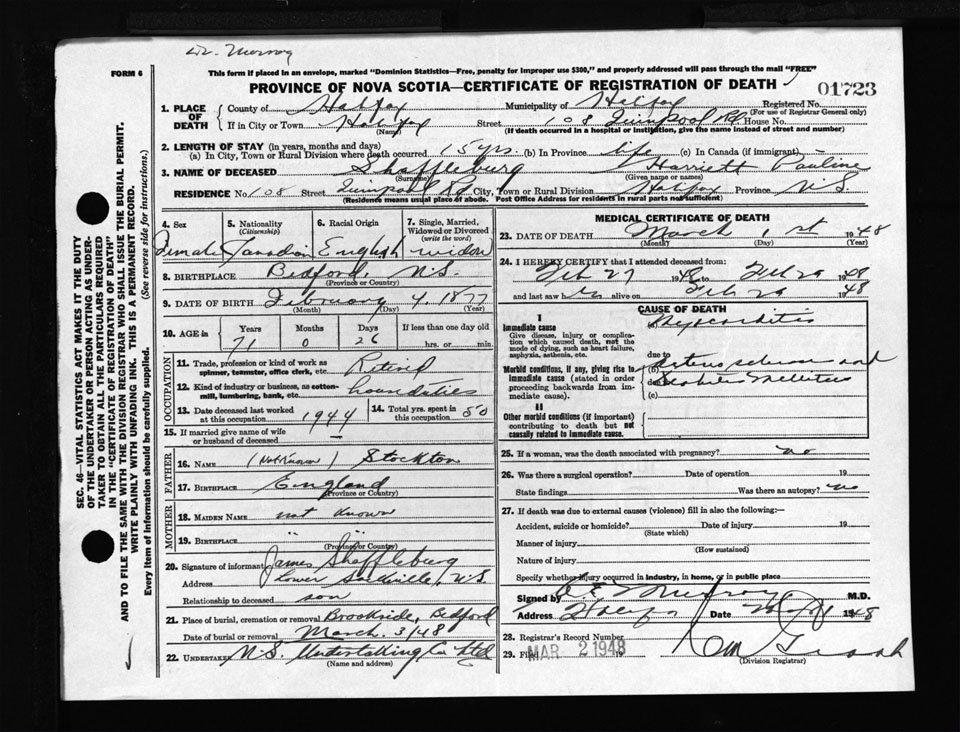 Dr. Murray
FORM 6
This form if placed in an envelope, marked "Dominion Statistics—Free, penalty for improper use $300," and properly addressed will pass through the mail "FREE"
PROVINCE OF NOVA SCOTIA—CERTIFICATE OF REGISTRATION OF DEATH
01723
1. PLACE OF DEATH
County of Halifax Municipality of Halifax Registered No.
(For use of Registrar General only)
If in City or Town Halifax Street 108 Quinpool Rd. House No.
(Name) (If death occurred in a hospital or institution, give the name instead of street and number)
2. LENGTH OF STAY (in years, months and days)
(a) In City, Town or Rural Division where death occurred 15 yrs. (b) In Province life (c) In Canada (if immigrant)
3. NAME OF DECEASED Shaffleburg Harriett Pauline
(Surname) (Given name or names)
RESIDENCE No 108 Street Quinpool Rd City, Town or Rural Division Halifax Province N.S.
(Residence means usual place of abode. Post Office Address for residents in rural parts not sufficient)
4. Sex 5. Nationality (Citizenship) 6. Racial Origin 7. Single, Married, Widowed or Divorced (write the word)
Female Canadian English widow
8. BIRTHPLACE Bedford, N.S.
(Province or Country)
9. DATE OF BIRTH February 4, 1877
(Month) (Day) (Year)
10. AGE in Years Months Days If less than one day old
71 0 26 hrs. or min.
OCCUPATION
11. Trade, profession or kind of work as spinner, teamster, office clerk, etc. Retired
12. Kind of industry or business, as cotton-mill, lumbering, bank, etc. house duties
13. Date deceased last worked at this occupation 1944 14. Total yrs. spent in this occupation 50
15. If married give name of wife or husband of deceased —
FATHER
16. NAME (Not Known) Stockton
17. BIRTHPLACE England
(Province or Country)
MOTHER
18. MAIDEN NAME not known
19. BIRTHPLACE " "
(Province or Country)
20. Signature of informant James Shaffleburg
Address Lower Sackville, N.S.
Relationship to deceased son
21. Place of burial, cremation or removal Brookside, Bedford
Date of burial or removal March. 3/48
22. UNDERTAKER N.S. Undertaking Co Ltd
(Name and address)
MEDICAL CERTIFICATE OF DEATH
23. DATE OF DEATH March 1st 1948
(Month) (Day) (Year)
24. I HEREBY CERTIFY that I attended deceased from:
Feb 27 1948 to Feb 29 1948
and last saw her alive on Feb 29 1948
CAUSE OF DEATH
I
Immediate cause Myocarditis
Give disease, injury or complication which caused death, not the mode of dying, such as heart failure, asphyxia, asthenia, etc.
due to
Morbid conditions, if any, giving rise to immediate cause (stated in order proceeding backwards from immediate cause).
(b) Arterio sclerosis and
due to Diabetes Mellitus
(c)
II
Other morbid conditions (if important) contributing to death but not causally related to immediate cause.
25. If a woman, was the death associated with pregnancy? no
26. Was there a surgical operation? Date of operation 19
State findings Was there an autopsy? no
27. If death was due to external causes (violence) fill in also the following:—
Accident, suicide or homicide? Date of injury 19
(State which)
Manner of injury
(How sustained)
Nature of injury
Specify whether injury occurred in industry, in home, or in public place
Signed by Murray M.D.
Address Halifax Date 1948
28. Registrar's Record Number
29. Filed MAR 2 1948 19
(Division Registrar)
SEC. 46—VITAL STATISTICS ACT MAKES IT THE DUTY
OF THE UNDERTAKER OR PERSON ACTING AS UNDER-
TAKER TO OBTAIN ALL THE PARTICULARS REQUIRED
IN THE "CERTIFICATE OF REGISTRATION OF DEATH"
AND TO FILE THE SAME WITH THE DIVISION REGISTRAR WHO SHALL ISSUE THE BURIAL PERMIT.
WRITE PLAINLY WITH UNFADING INK. THIS IS A PERMANENT RECORD.
Every item of information should be carefully supplied. (See reverse side for instructions.)